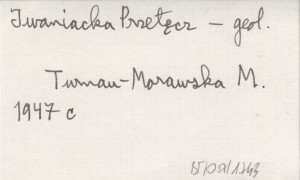 Iwaniacka Przełęcz – geol.
Turnau-Morawska M.
1947 c